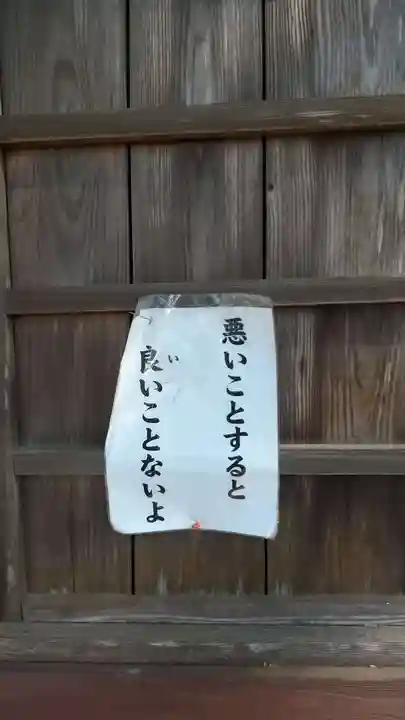 悪いことすると
良いことないよ
い